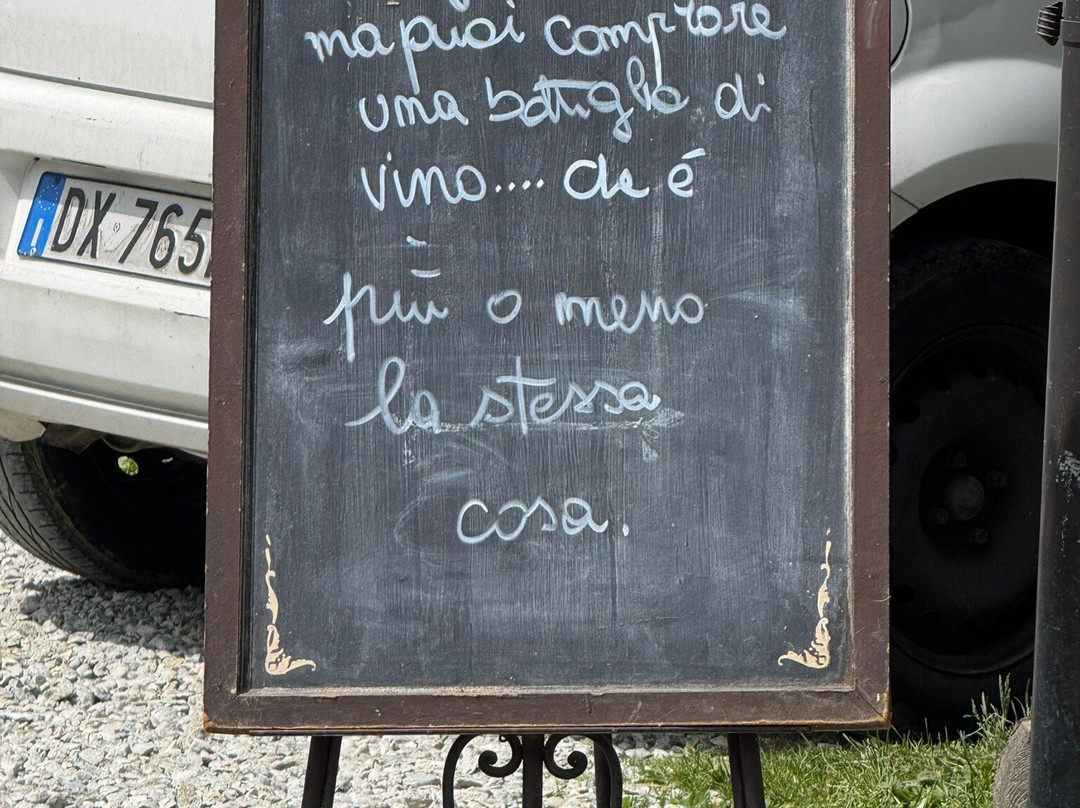 ma puoi comprare
una bottiglia di
vino.... che é
più o meno
la stessa
cosa.
I DX 765